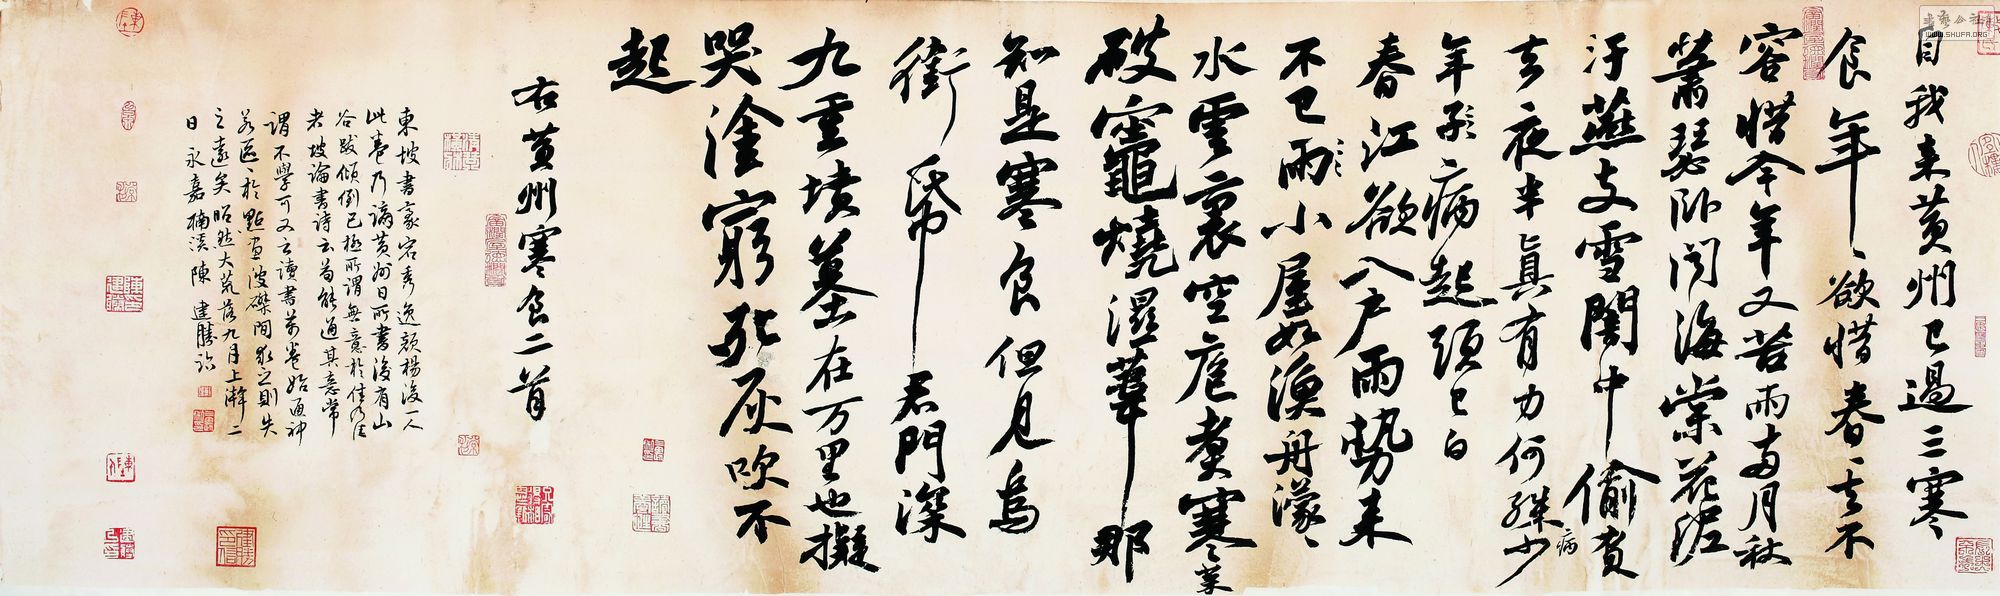 自我来黄州已過三寒
食年〻欲惜春〻去不
容惜今年又苦雨两月秋
蕭瑟卧聞海棠花泥
汙燕支雪闇中偷負
去夜半真有力何殊少
病
年子病起頭已白
春江欲入户雨势来
不已雨小屋如漁舟濛〻
水雲裏空庖煮寒菜
破竈燒濕葦那
知是寒食但見烏
銜帋君門深
九重墳墓在万里也擬
哭塗窮死灰吹不
起
右黄州寒食二首
東坡書豪宕秀逸顏楊後一人
此卷乃謫黄州日所書後有山
谷跋傾倒已極所謂無意於佳乃佳
者坡論書詩云苟能通其意常
謂不學可又云讀書萬卷始通神
若區〻於點畫波磔間求之則失
之遠矣 大荒落九月上澣二
日永嘉楠溪陳建勝
WWW.SHUFA.ORG